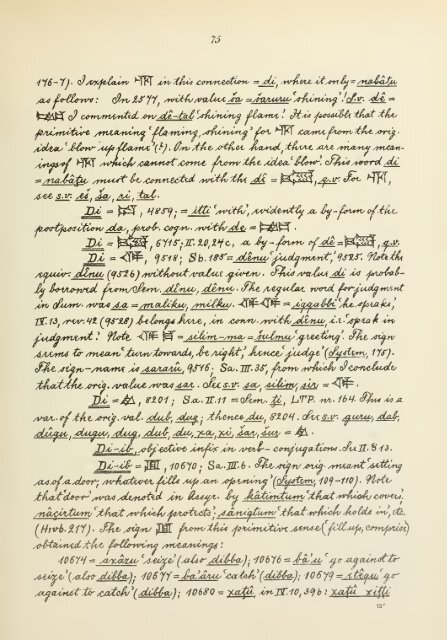 75
176-7). I explain 𒊑 in this connection = di, where it only = nabâṭu
as follows: In 2577, with value ša = šarûru 'shining'! S.v. dê =
I commented on dê-tal 'shining flame'. It is possible that the
primitive meaning 'flaming, shining' for came from the orig.
idea 'blow up flame' (?). On the other hand, there are many mean-
ings of which cannot come from the idea 'blow'. This word di
= nabâṭu must be connected with the dê = , q.v. For ,
see s.v. eš, ša, ri, tal.
Di = , 4859; = itti 'with', evidently a by-form of the
postposition da, prob. cogn. with de = .
Di = , 6715; II. 20, 24c, a by-form of dê = , q.v.
Di = , 9518; Sb. 185 = dênu 'judgment,' 9525. Note the
equiv. dênu (9526) without value given. This value di is probab-
ly borrowed from Sem. dênu, dênu. The regular word for judgment
in Sum. was sa = maliku, milku. = izzabbi 'he speaks,'
IV. 13, rev. 42 (9528) belongs here, in conn. with dênu, i.e. 'speak in
judgment.' Note = silim-ma = šulmu 'greeting'. The sign
seems to mean 'turn towards, be right,' hence 'judge' (System, 175).
The sign-name is sararû, 9576, Sa. III. 35, from which I conclude
that the orig. value was sar. See s.v. sa, silim, sir = .
Di = , 8201; Sa. II. 11 = Sem. ṭi, LTP. nr. 164. This is a
var. of the orig. val. dub, dug; thence du, 5204. See s.v. guru, dab,
dûgu, dugu, dug, dub, du, xa, xi, šar, šur = .
Di-ib, objective infix in verb-conjugations. See II. § 13.
Di-ib = , 10670; Sa. III. 6. The sign orig. meant 'setting
as of a door; whatever fills up an opening' (System, 109-110). Note
that 'door' was denoted in Assyr. by kâtimtum 'that which covers',
nâçirtum 'that which protects'; sâniqtum 'that which holds in', etc.
(Hwb. 217). The sign from this primitive sense (fill up, comprise)
obtained the following meanings:
10674 = axâzu 'seize' (also dibba); 10676 = bâ'u 'go against to
seize' (also dibba); 10677 = ba'âru 'catch' (dibba); 10679 = etêqu 'go
against to catch' (dibba); 10680 = xaṭû, in IV. 10, 39b: xaṭû xiṭṭi
15*